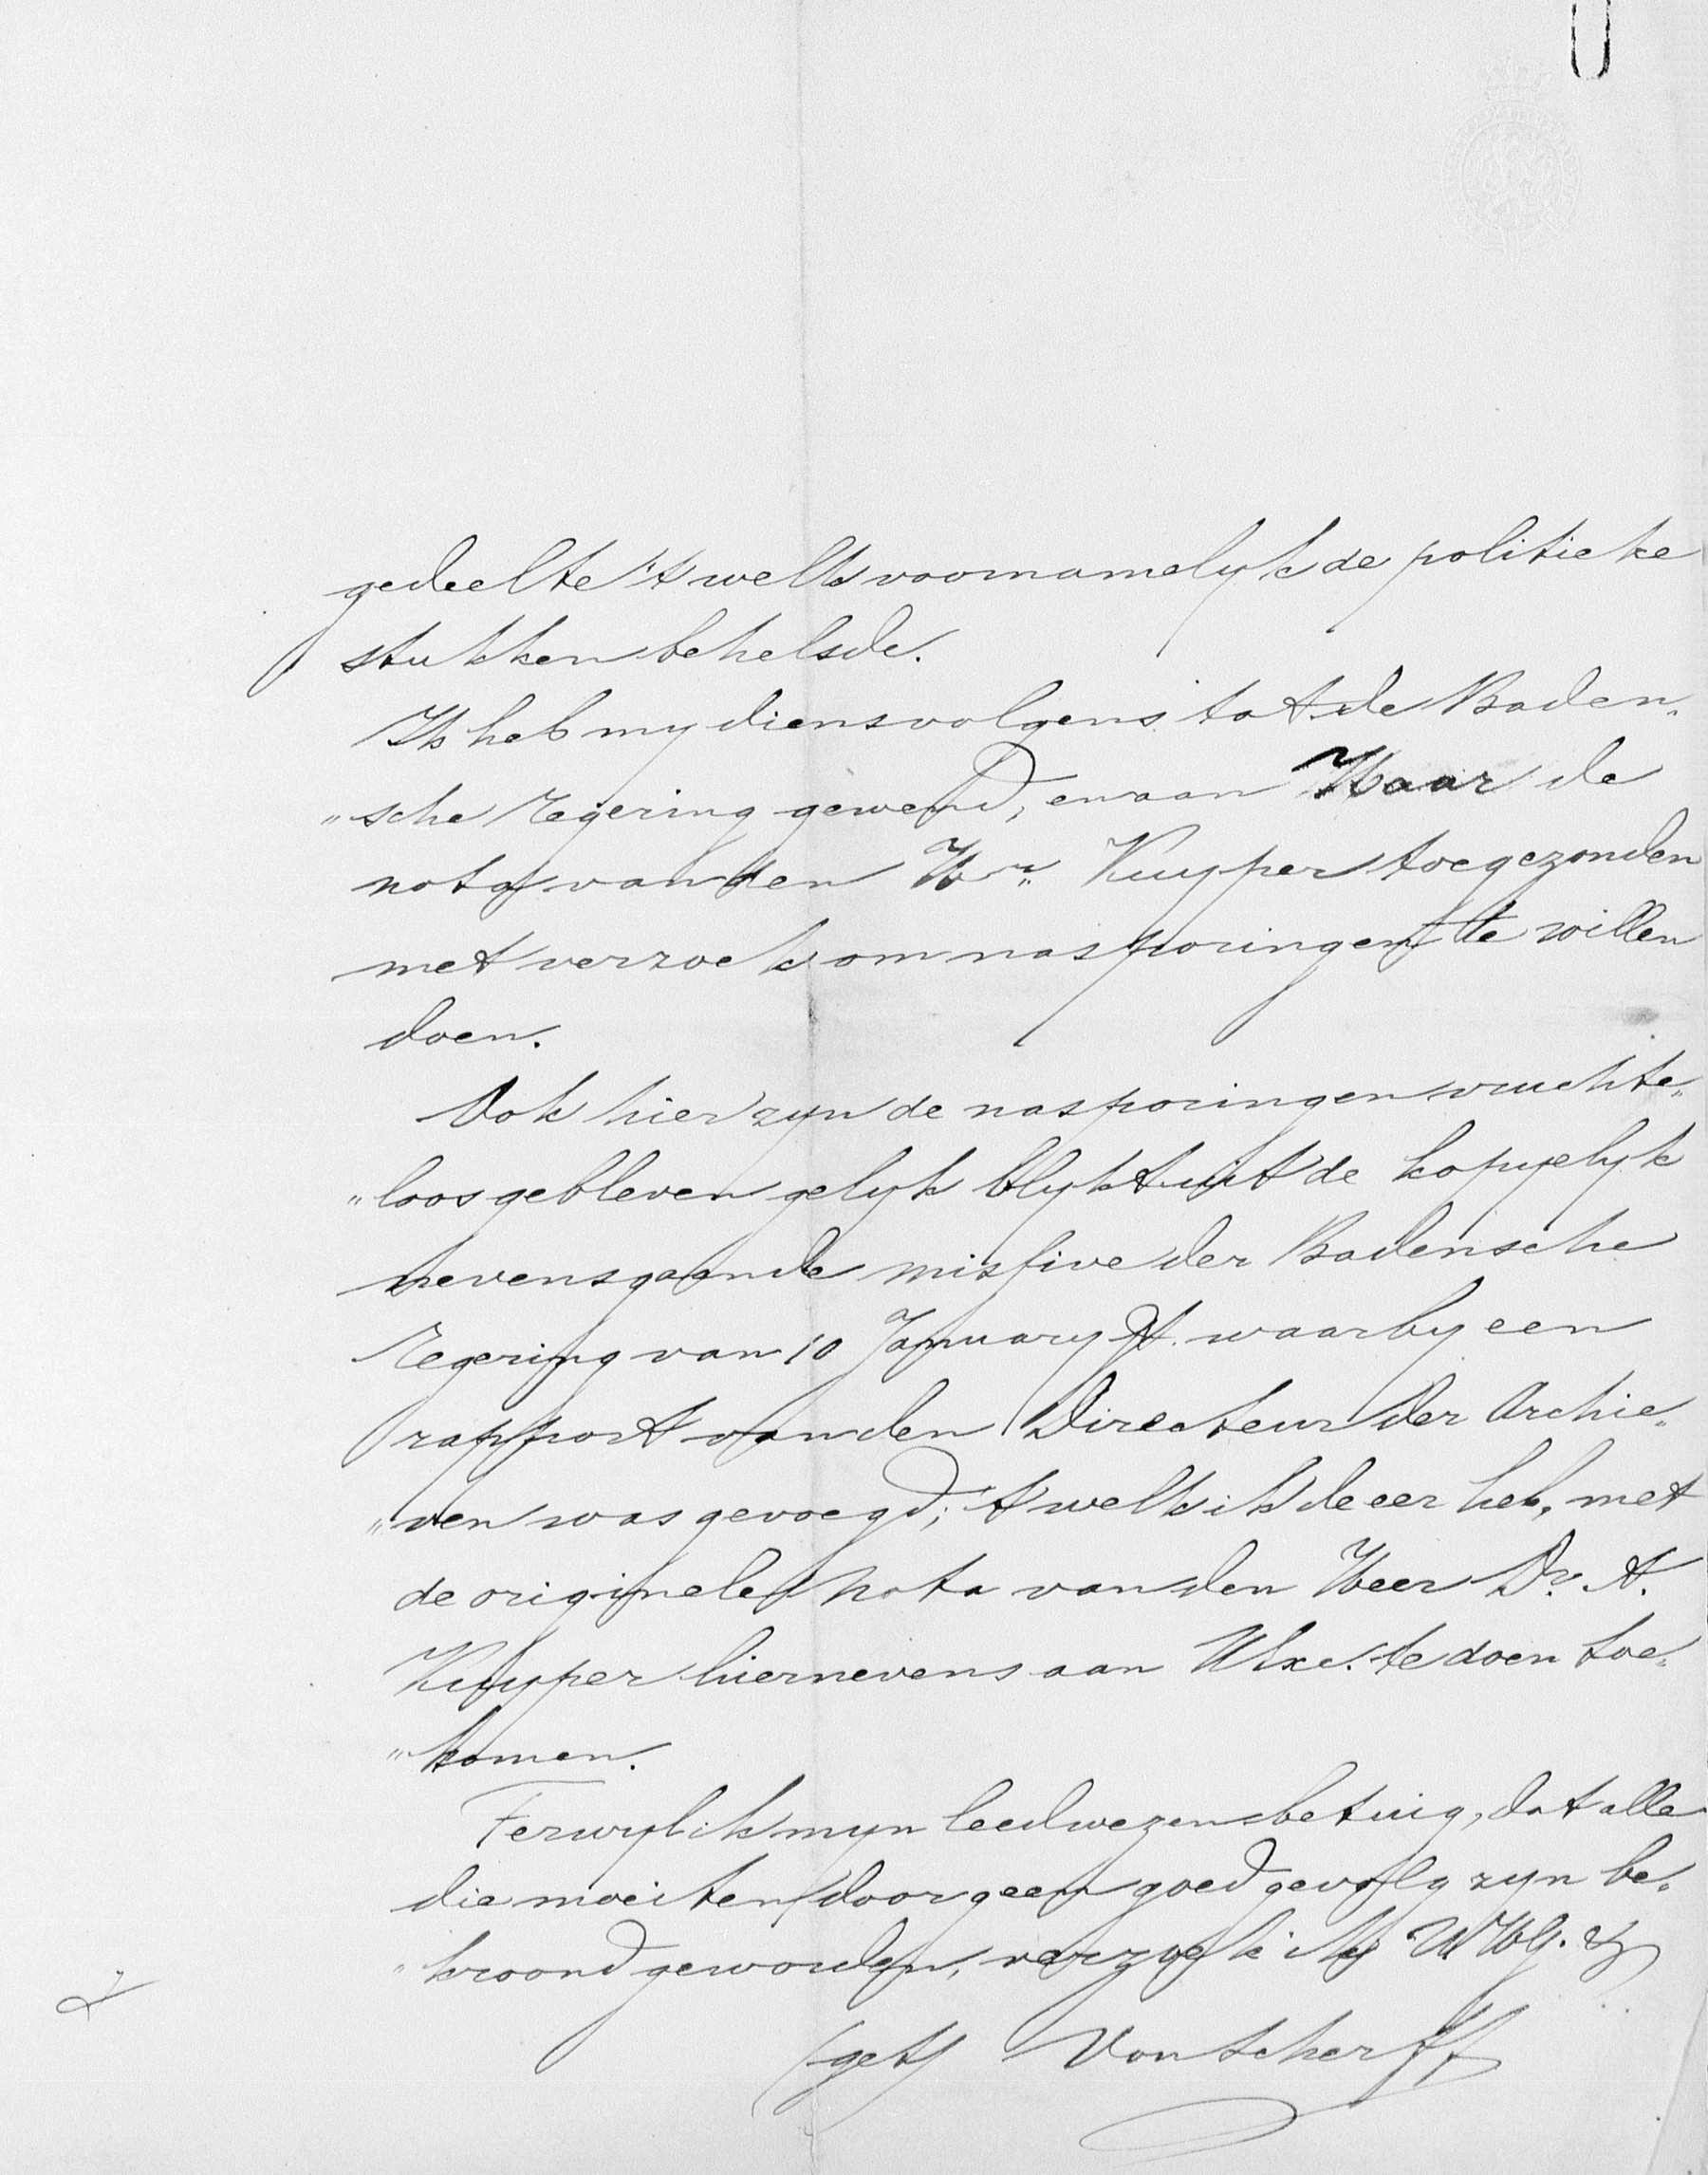 gedeelte 't welk voornamelyk de politieke
stukken behelsde.
Ik heb my diensvolgens tot de Baden„
„sche regering gewend, en aan Haar de
nota van den Hr. Kuyper toegezonden
met verzoek om nasporingen te willen
doen.
Ook hier zyn de nasporingen vruchte„
„loos gebleven gelyk blykt uit de kopyelyk
nevensgaande missive der Badensche
regering van 10 January jl. waarby een
rapport van den Directeur der Archie„
„ven was gevoegd; 't welk ik de eer heb, met
de originele nota van den Heer Dr. A.
Kuyper hiernevens aan UExc. te doen toe„
„komen.
Terwyl ik myn leedwezen betuig, dat alle
die moeiten door geen goed gevolg zyn be„
„kroond geworden, verzoek ik UHG. &
(get) Van Scherff